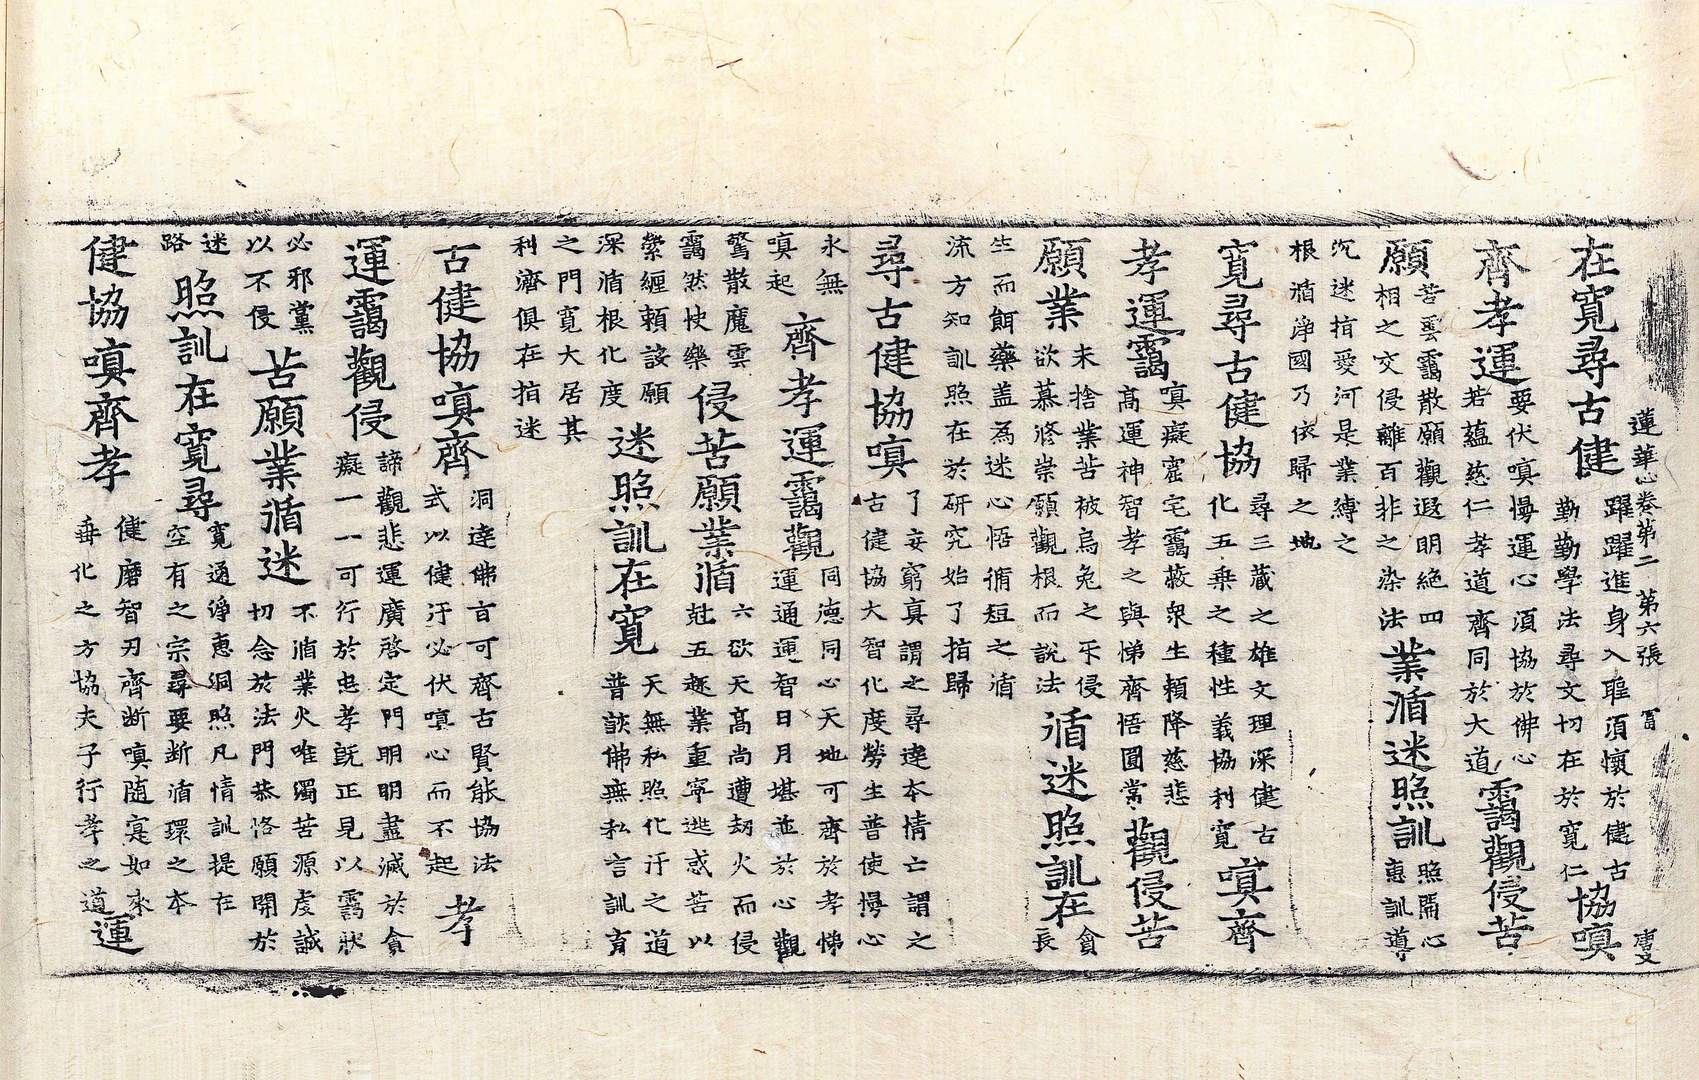 蓮華心卷第二 第六張 冨 唐乂
在寬尋古健
躍躍進身入聖須懷於健古
勤勤學法尋文切在於寬仁
協嗔
齊孝運
要伏嗔慢運心須協於佛心
若蘊慈仁孝道齊同於大道
靄觀侵苦
願
苦雲靄散願觀遐明絕四
相之交侵離百非之染法
業循迷照訓
照開心
惠訓導
沉迷指愛河是業縛之
根循淨國乃依歸之地
寬尋古健協
尋三藏之雄文理深健古
化五乘之種性義協利寬
嗔齊
孝運靄
嗔癡窟宅靄蔽衆生頼降慈悲
高運神智孝之與悌齊悟圓常
觀侵苦
願業
未捨業苦被烏兔之牙侵
欲慕修崇願觀根而說法
循迷照訓在
貪
長
生而餌藥盖為迷心悟脩短之循
流方知訓照在於研究始了指歸
尋古健協嗔
了妄窮真謂之尋達本情亡謂之
古健協大智化度勞生普使慢心
永無
嗔起
齊孝運靄觀
同德同心天地可齊於孝悌
運通運智日月堪並於心觀
驚散魔雲
靄然快樂
侵苦願業循
六欲天高尚遭劫火而侵
尅五趣業重寧逃惑苦以
縈纏頼該願
深循根化度
迷照訓在寬
天無私照化汙之道
普該佛無私言訓育
之門寬大居其
利濟俱在指迷
古健協嗔齊
洞達佛言可齊古賢能協法
式以健汙必伏嗔心而不起
孝
運靄觀侵
諦觀悲運廣啓定門明明盡滅於貪
癡一一可行於忠孝旣正見以靄狀
必邪黨
以不侵
苦願業循迷
不循業火唯獨苦源虔誠
切念於法門恭恪願開於
迷
路
照訓在寬尋
寬通淨惠洞照凡情訓提在
空有之宗尋要斷循環之本
健協嗔齊孝
健磨智刃齊斷嗔隨寔如來
垂化之方協夫子行孝之道
運